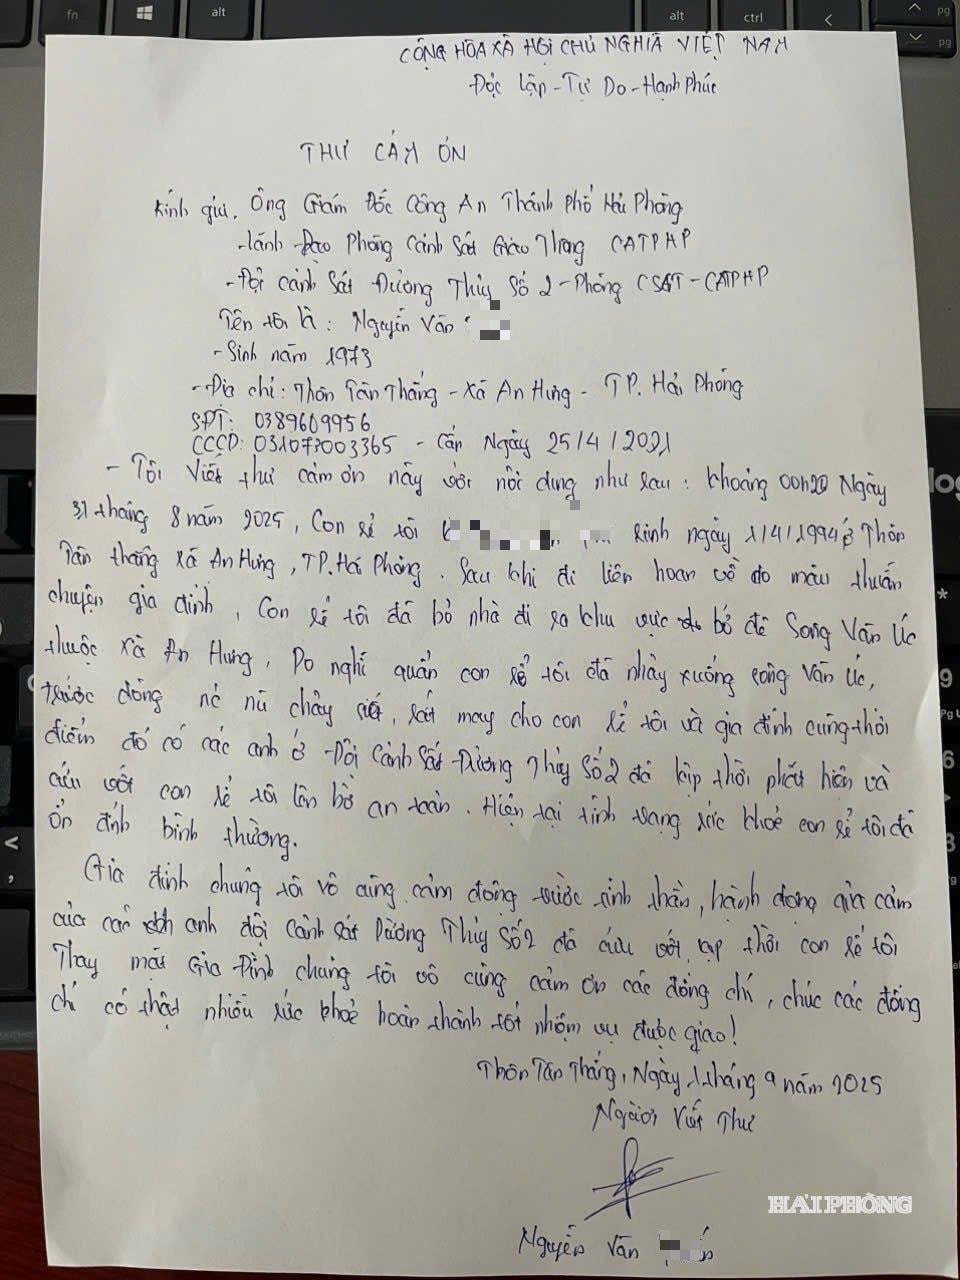 CỘNG HÒA XÃ HỘI CHỦ NGHĨA VIỆT NAM
Độc lập - Tự Do - Hạnh Phúc
THƯ CẢM ƠN
Kính gửi. Ông Giám Đốc Công An Thành Phố Hải Phòng
- lãnh Đạo Phòng Cảnh Sát Giao Thông CATPHP
- Đội cảnh Sát Đường Thủy Số 2 - Phòng CSGT - CATPHP
Tên tôi là : Nguyễn Văn
- Sinh năm 1973
- Địa chỉ : Thôn Tân Thắng - Xã An Hưng - TP. Hải Phòng
SĐT: 0389609956
CCCD: 031073003365 - Cấp Ngày 25/4/2021
- Tôi viết thư cảm ơn này với nội dung như sau : khoảng 00h20 Ngày
31 tháng 8 năm 2025, Con rể tôi sinh ngày 1/4/1994 ở Thôn
Tân thắng xã An Hưng, TP. Hải Phòng. Sau khi đi liên hoan về do mâu thuẫn
chuyện gia đình, Con rể tôi đã bỏ nhà đi ra khu vực bờ đê Sông Văn Úc
thuộc xã An Hưng, Do nghĩ quẩn con rể tôi đã nhảy xuống sông Văn Úc,
trước dòng nước lũ chảy siết, rất may cho con rể tôi và gia đình cùng thời
điểm đó có các anh ở - Đội Cảnh Sát Đường Thủy Số 2 đã kịp thời phát hiện và
cứu vớt con rể tôi lên bờ an toàn. Hiện tại tình trạng sức khoẻ con rể tôi đã
ổn định bình thường.
Gia đình chúng tôi vô cùng cảm động trước tinh thần, hành động dũng cảm
của các anh đội Cảnh sát Đường Thủy Số 2 đã cứu vớt kịp thời con rể tôi
Thay mặt Gia Đình chúng tôi vô cùng cảm ơn các đồng chí, chúc các đồng
chí có thật nhiều sức khoẻ hoàn thành tốt nhiệm vụ được giao!
Thôn Tân Thắng, Ngày 1 tháng 9 năm 2025
Người Viết Thư
Nguyễn Văn
HẢI PHÒNG